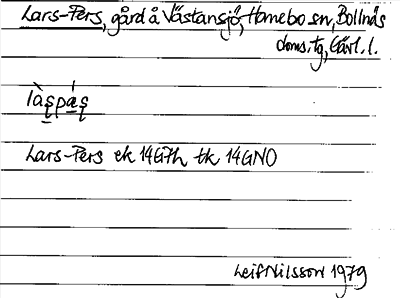 Lars-Pers, gård å Västansjö, Hanebo sn, Bollnäs
doms. tg, Gävl. l.
làs̱pá̱s̱
Lars-Pers ek 14G7h tk 14GNO
Leif Nilsson 1979